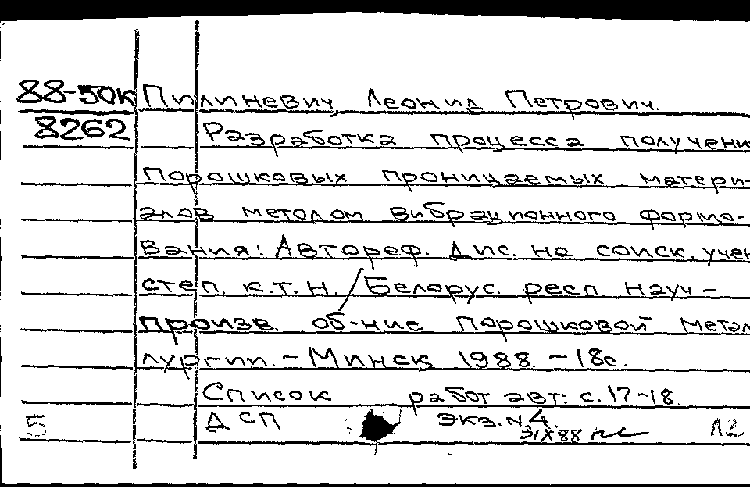 88-50К Пилиневич Леонид Петрович.
8262 Разработка процесса получени
порошковых проницаемых матери-
алов методом вибрационного формо-
вания: Автореф. Дис. на соиск. учен
степ. к.т.н. / Белорус. респ. науч-
произв. об-ние порошковой метал
лургии. - Минск 1988 - 18с.
Список работ авт: с. 17-18.
5 ДСП экз. N 4